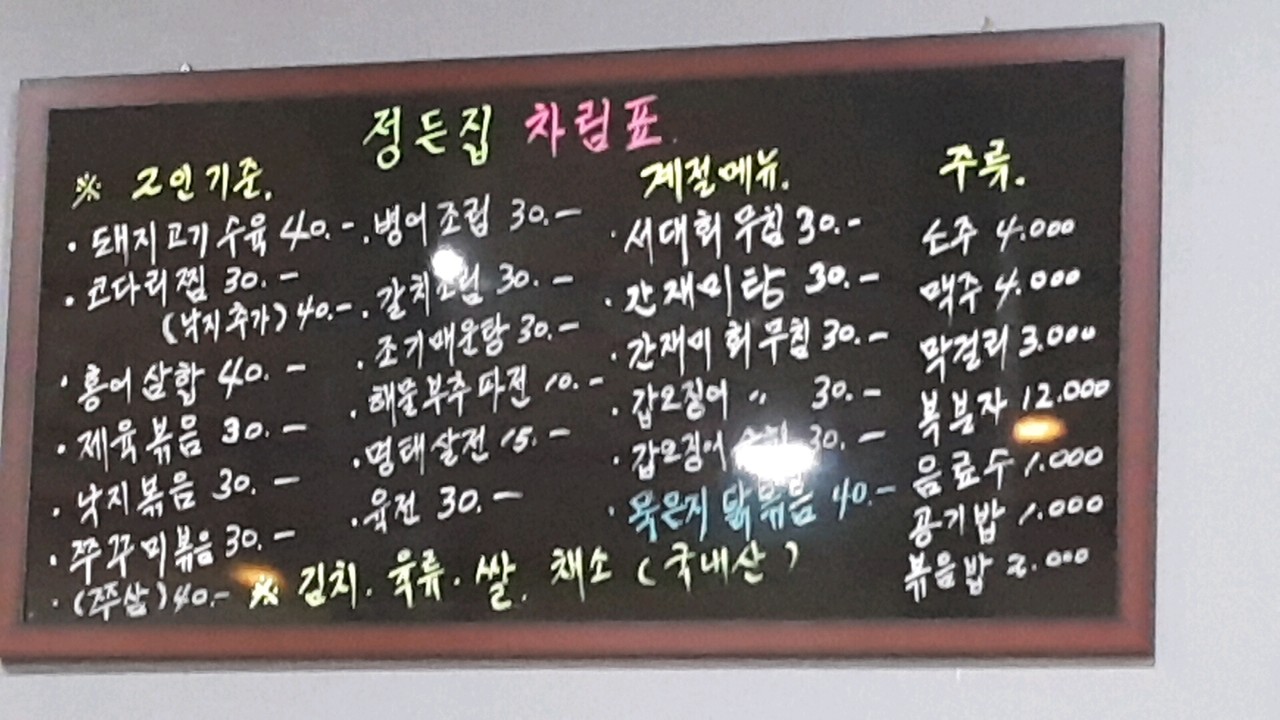 정든집 차림표
※ 2인기준.
· 돼지고기 수육 40.-
· 코다리찜 30.-
(낙지추가) 40.-
· 홍어삼합 40.-
· 제육볶음 30.-
· 낙지볶음 30.-
· 쭈꾸미볶음 30.-
· (쭈삼) 40.-
· 병어조림 30.-
· 갈치조림 30.-
· 조기매운탕 30.-
· 해물부추파전 10.-
· 명태살전 15.-
· 육전 30.-
계절메뉴.
· 서대회무침 30.-
· 간재미탕 30.-
· 간재미회무침 30.-
· 갑오징어 〃 30.-
· 갑오징어 30.-
· 묵은지 닭볶음 40.-
주류.
소주 4.000
맥주 4.000
막걸리 3.000
복분자 12.000
음료수 1.000
공기밥 1.000
볶음밥 2.000
※ 김치. 육류. 쌀. 채소 (국내산)